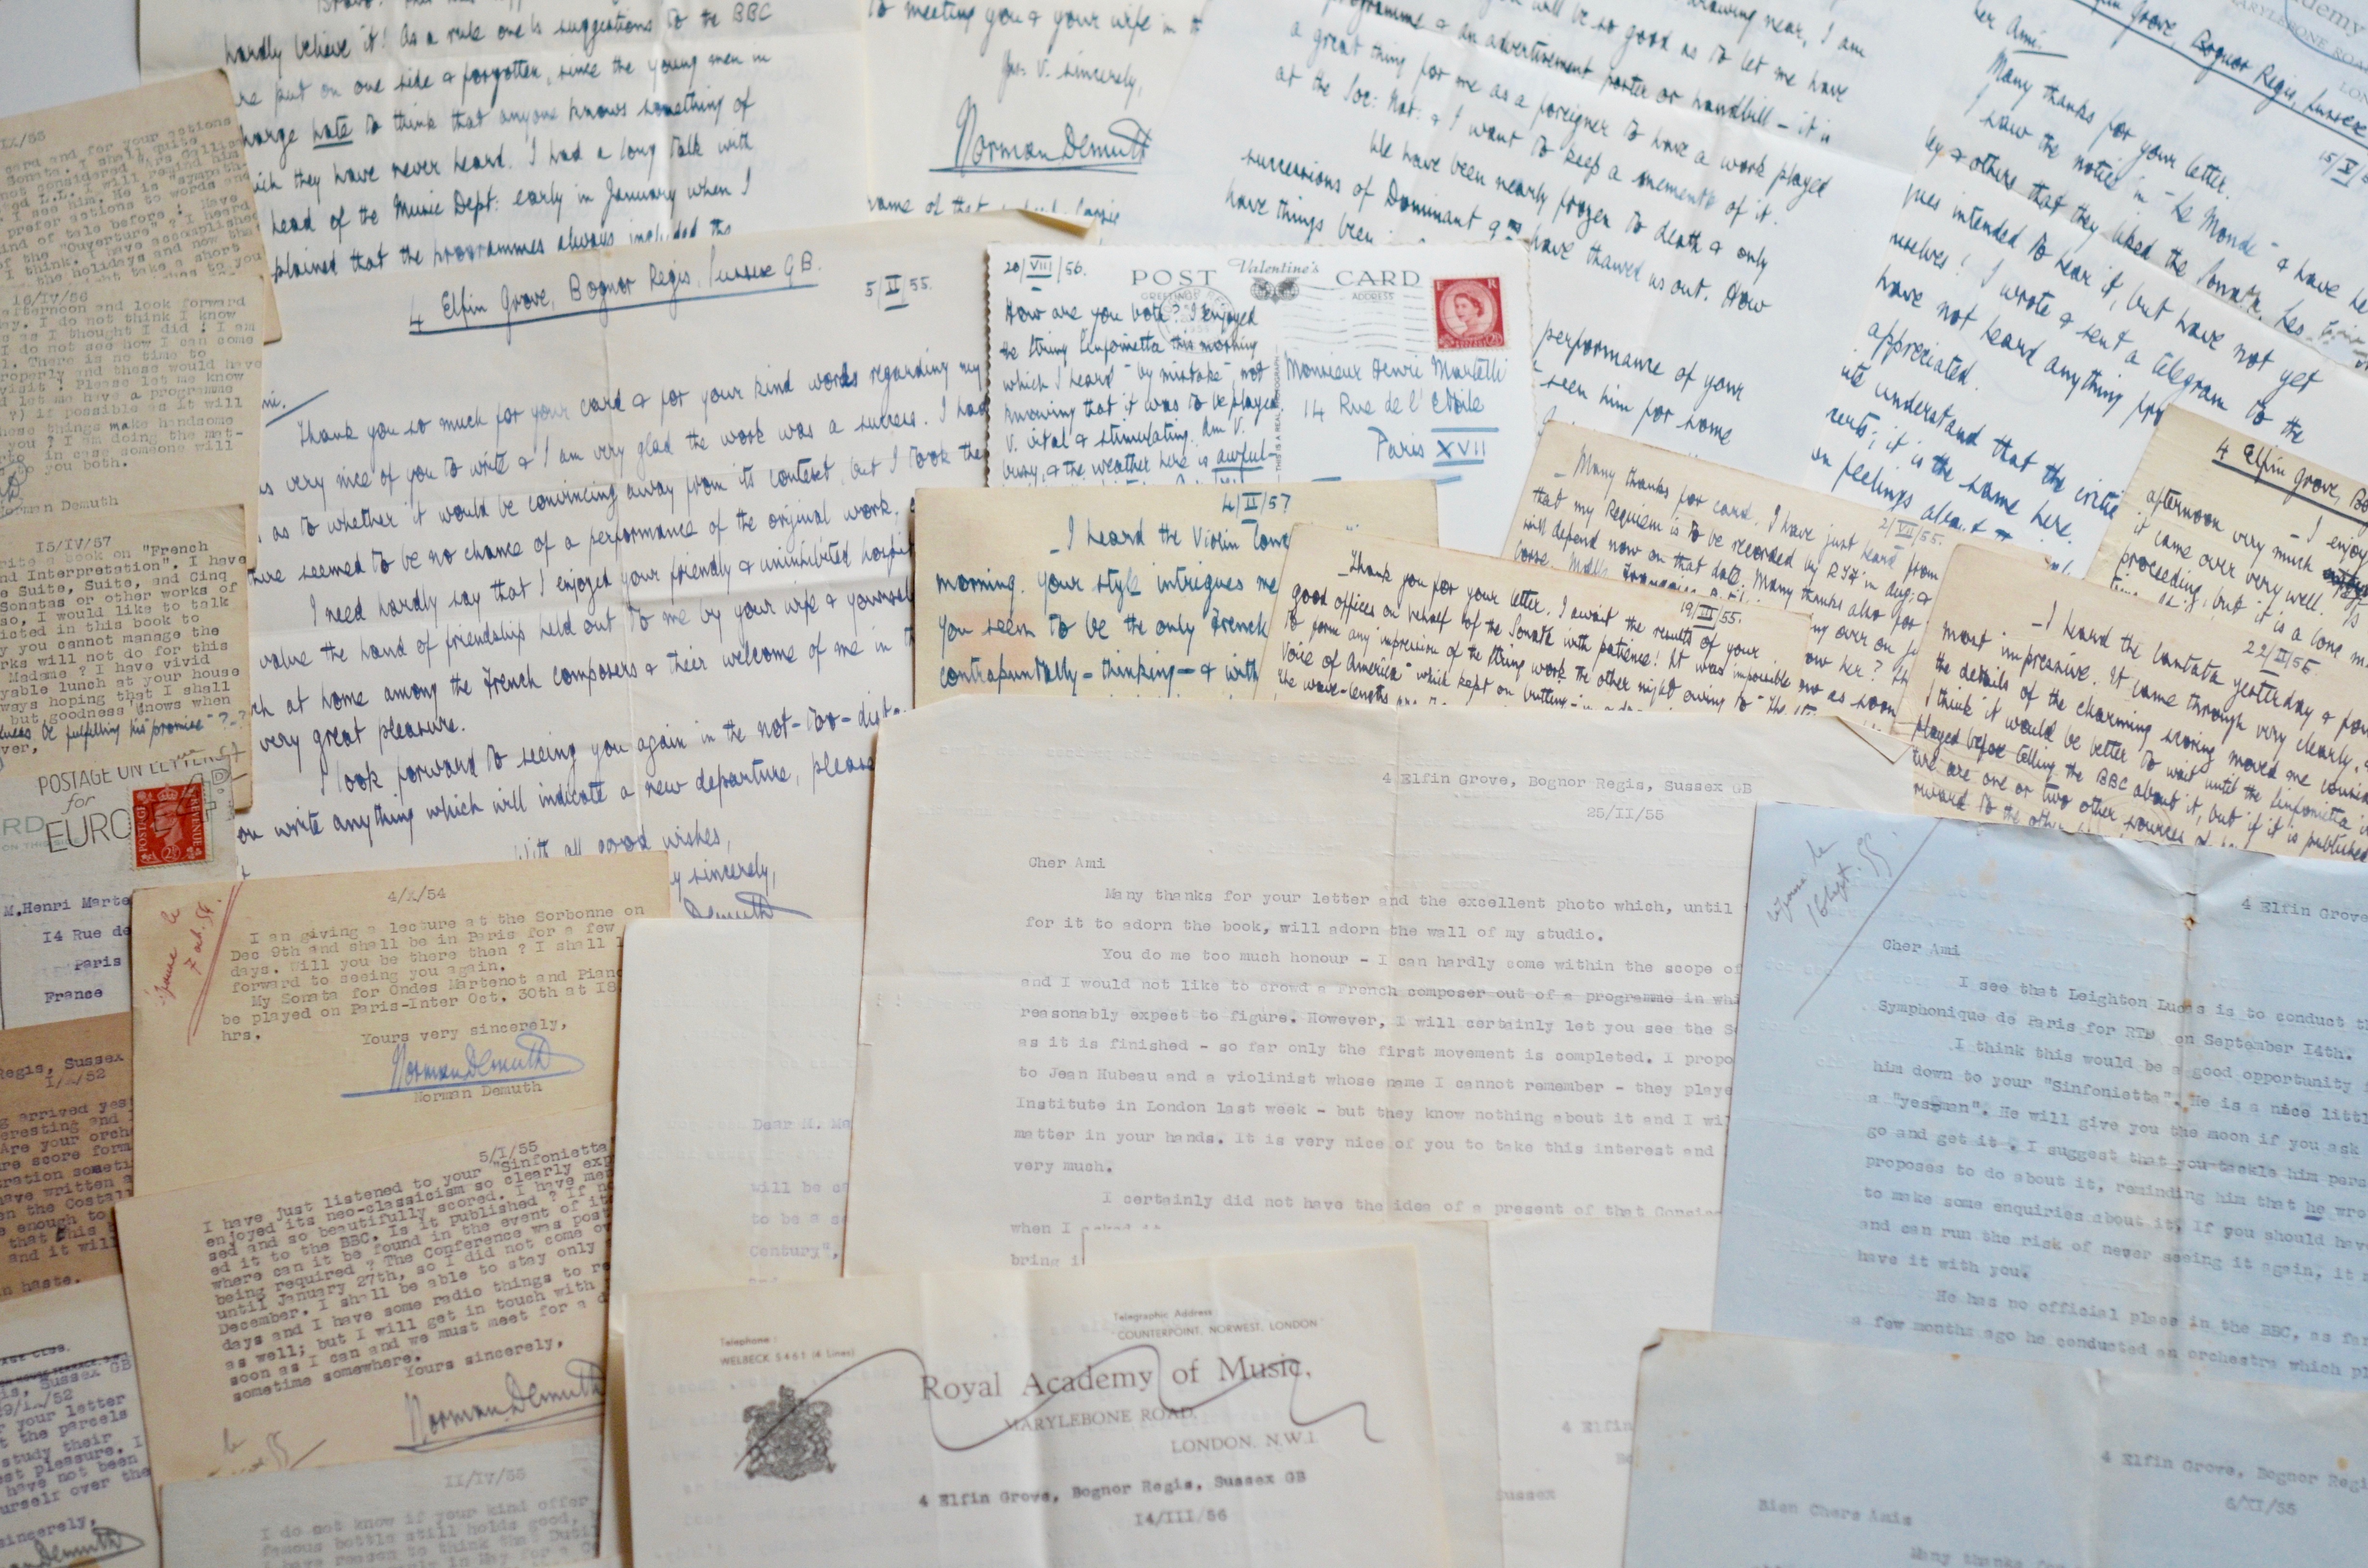 hardly believe it! As a rule one's suggestions to the BBC
are put on one side & forgotten, since the young men in
charge hate to think that anyone knows something of
which they have never heard. I had a long talk with
head of the Music Dept: early in January when I
plained that the programmes always included the
to meeting you & your wife in
Yrs. V. sincerely,
Norman Demuth
name of that
drawing near, I am
will be so good as to let me have
programme & an advertisement poster or handbill – it is
a great thing for me as a foreigner to have a work played
at the Soc: Nat: & I want to keep a memento of it.
We have been nearly frozen to death & only
successions of Dominant 9ths have thawed us out. How
have things been
performance of your
seen him for some
Elfin Grove, Bognor Regis, Sussex
15/V/
Cher Ami.
Many thanks for your letter.
I saw the notice in "Le Monde" & have
& others that they liked the Sonata.
intended to hear it, but have not yet
! I wrote & sent a telegram to the
have not heard anything
appreciated.
understand that the
it is the same here.
feelings
IX/55
card and for your
Sonata. I shall quite
not considered Mrs
L.L. I will remind him
I see him. He is "sympath-
prefer actions to words and
kind of tale before ! Have
of the "Ouverture" ? I heard
I think. I have accomplished
the holidays and now that
might take a short
16/IV/56
afternoon and look forward
I do not think I know
as I thought I did ! I am
I do not see how I can come
There is no time to
properly and these would have
visit ! Please let me know
let me have a programme
?) if possible as it will
these things make handsome
you ? I am doing the
in case someone will
to you both.
Norman Demuth
15/IV/57
write a book on "French
and Interpretation". I have
Suite, Suite, and Cinq
Sonatas or other works of
so, I would like to talk
in this book to
you cannot manage the
works will not do for this
Madame ? I have vivid
lunch at your house
always hoping that I shall
but goodness knows when
fulfilling his "promise" ?–?
POSTAGE ON LETTERS
for
EUROP
4D
POSTAGE
REVENUE
M.Henri Marte
14 Rue de
Paris
France
4 Elfin Grove, Bognor Regis, Sussex G.B.
5/II/55.
Thank you so much for your card & for your kind words regarding my
very nice of you to write & I am very glad the work was a success. I had
as to whether it would be convincing away from its context, but I took the
there seemed to be no chance of a performance of the original work.
I need hardly say that I enjoyed your friendly & uninhibited
value the hand of friendship held out to me by your wife & yourself
at home among the French composers & their welcome of me in
very great pleasure.
I look forward to seeing you again in the not-too-dist
write anything which will indicate a new departure, please
With all good wishes,
sincerely,
Demuth
20/VIII/56.
POST CARD
Valentine's
ADDRESS
THIS IS A REAL PHOTOGRAPH
How are you both? I enjoyed
the String Sinfonietta this morning
which I heard "by mistake" not
knowing that it was to be played.
V. vital & stimulating. Am V.
busy, & the weather here is awful–
Monsieur Henri Martelli
14 Rue de l'Etoile
Paris XVII
E R
4/II/57
– I heard the Violin Conc
morning. Your style intrigues me
You seem to be the only French
contrapuntally – thinking – & with
2/VII/55.
– Many thanks for card. I have just heard from
that my Requiem is to be recorded by RTF in Aug: &
will depend now on that date. Many thanks also for
19/III/55.
– Thank you for your letter. I await the results of your
good offices on behalf of the Sonata with patience! It was impossible
to form any impression of the String work the other night owing to "The
Voice of America" which kept on butting-in
the wave-lengths
4 Elfin Grove, Bo
afternoon very much – I enjoy
it came over very well.
proceeding, but it is a long
22/II/56
– I heard the Cantata yesterday &
most impressive. It came through very clearly,
the details of the charming scoring moved me
I think it would be better to wait until the Sinfonietta
played before telling the BBC about it, but if it is published
are one or two other sources
to the other
4/X/54
I am giving a lecture at the Sorbonne on
Dec 9th and shall be in Paris for a few
days. Will you be there then ? I shall
forward to seeing you again.
My Sonata for Ondes Martenot and Piano
be played on Paris-Inter Oct. 30th at 18
hrs.
Yours very sincerely,
Norman Demuth
Norman Demuth
Regis, Sussex
1/X/52
arrived yes
eresting and
Are your orch
score form
ration someti
have written a
en the Costal
enough to
that this
and it will
in haste.
5/I/55
I have just listened to your "Sinfonietta
enjoyed its neo-classicism so clearly exp
sed and so beautifully scored. I have men
ed it to the BBC. Is it published ? If no
where can it be found in the event of it
being required ? The Conference was post
until January 27th, so I did not come ov
December. I shall be able to stay only
days and I have some radio things to re
as well; but I will get in touch with
soon as I can and we must meet for a d
sometime somewhere.
Yours sincerely,
Norman Demuth
Sussex GB
your letter
the parcels
study their
pleasure. I
have not been
yourself over the
sincerely,
Demuth
II/IV/55
I do not know if your kind offer
famous bottle still holds good,
have reason to think that Dutil
in May for a
Dear M. Ma
will be
to be a
Century",
4 Elfin Grove, Bognor Regis, Sussex GB
25/II/56
Cher Ami
Many thanks for your letter and the excellent photo which, until
for it to adorn the book, will adorn the wall of my studio.
You do me too much honour – I can hardly come within the scope of
and I would not like to crowd a French composer out of a programme in whi
reasonably expect to figure. However, I will certainly let you see the S
as it is finished – so far only the first movement is completed. I propo
to Jean Hubeau and a violinist whose name I cannot remember – they playe
Institute in London last week – but they know nothing about it and I wi
matter in your hands. It is very nice of you to take this interest and
very much.
I certainly did not have the idea of a present of that
when I asked
bring i
4 Elfin Grove
Cher Ami
I see that Leighton Lucas is to conduct
Symphonique de Paris for RTF on September 14th.
I think this would be a good opportunity
him down to your "Sinfonietta". He is a nice littl
a "yesman". He will give you the moon if you ask
go and get it . I suggest that you tackle him pers
proposes to do about it, reminding him that he wro
to make some enquiries about it. If you should hav
and can run the risk of never seeing it again, it
have it with you.
He has no official place in the BBC, as far
a few months ago he conducted an orchestra which pl
Telephone :
WELBECK 5461 (4 Lines)
Telegraphic Address
"COUNTERPOINT, NORWEST, LONDON"
Royal Academy of Music,
MARYLEBONE ROAD,
LONDON. N.W.1.
4 Elfin Grove, Bognor Regis, Sussex GB
14/III/56
4 Elfin
Sussex
4 Elfin Grove, Bognor Regi
6/XI/55
Bien Chers Amis
Many thanks for